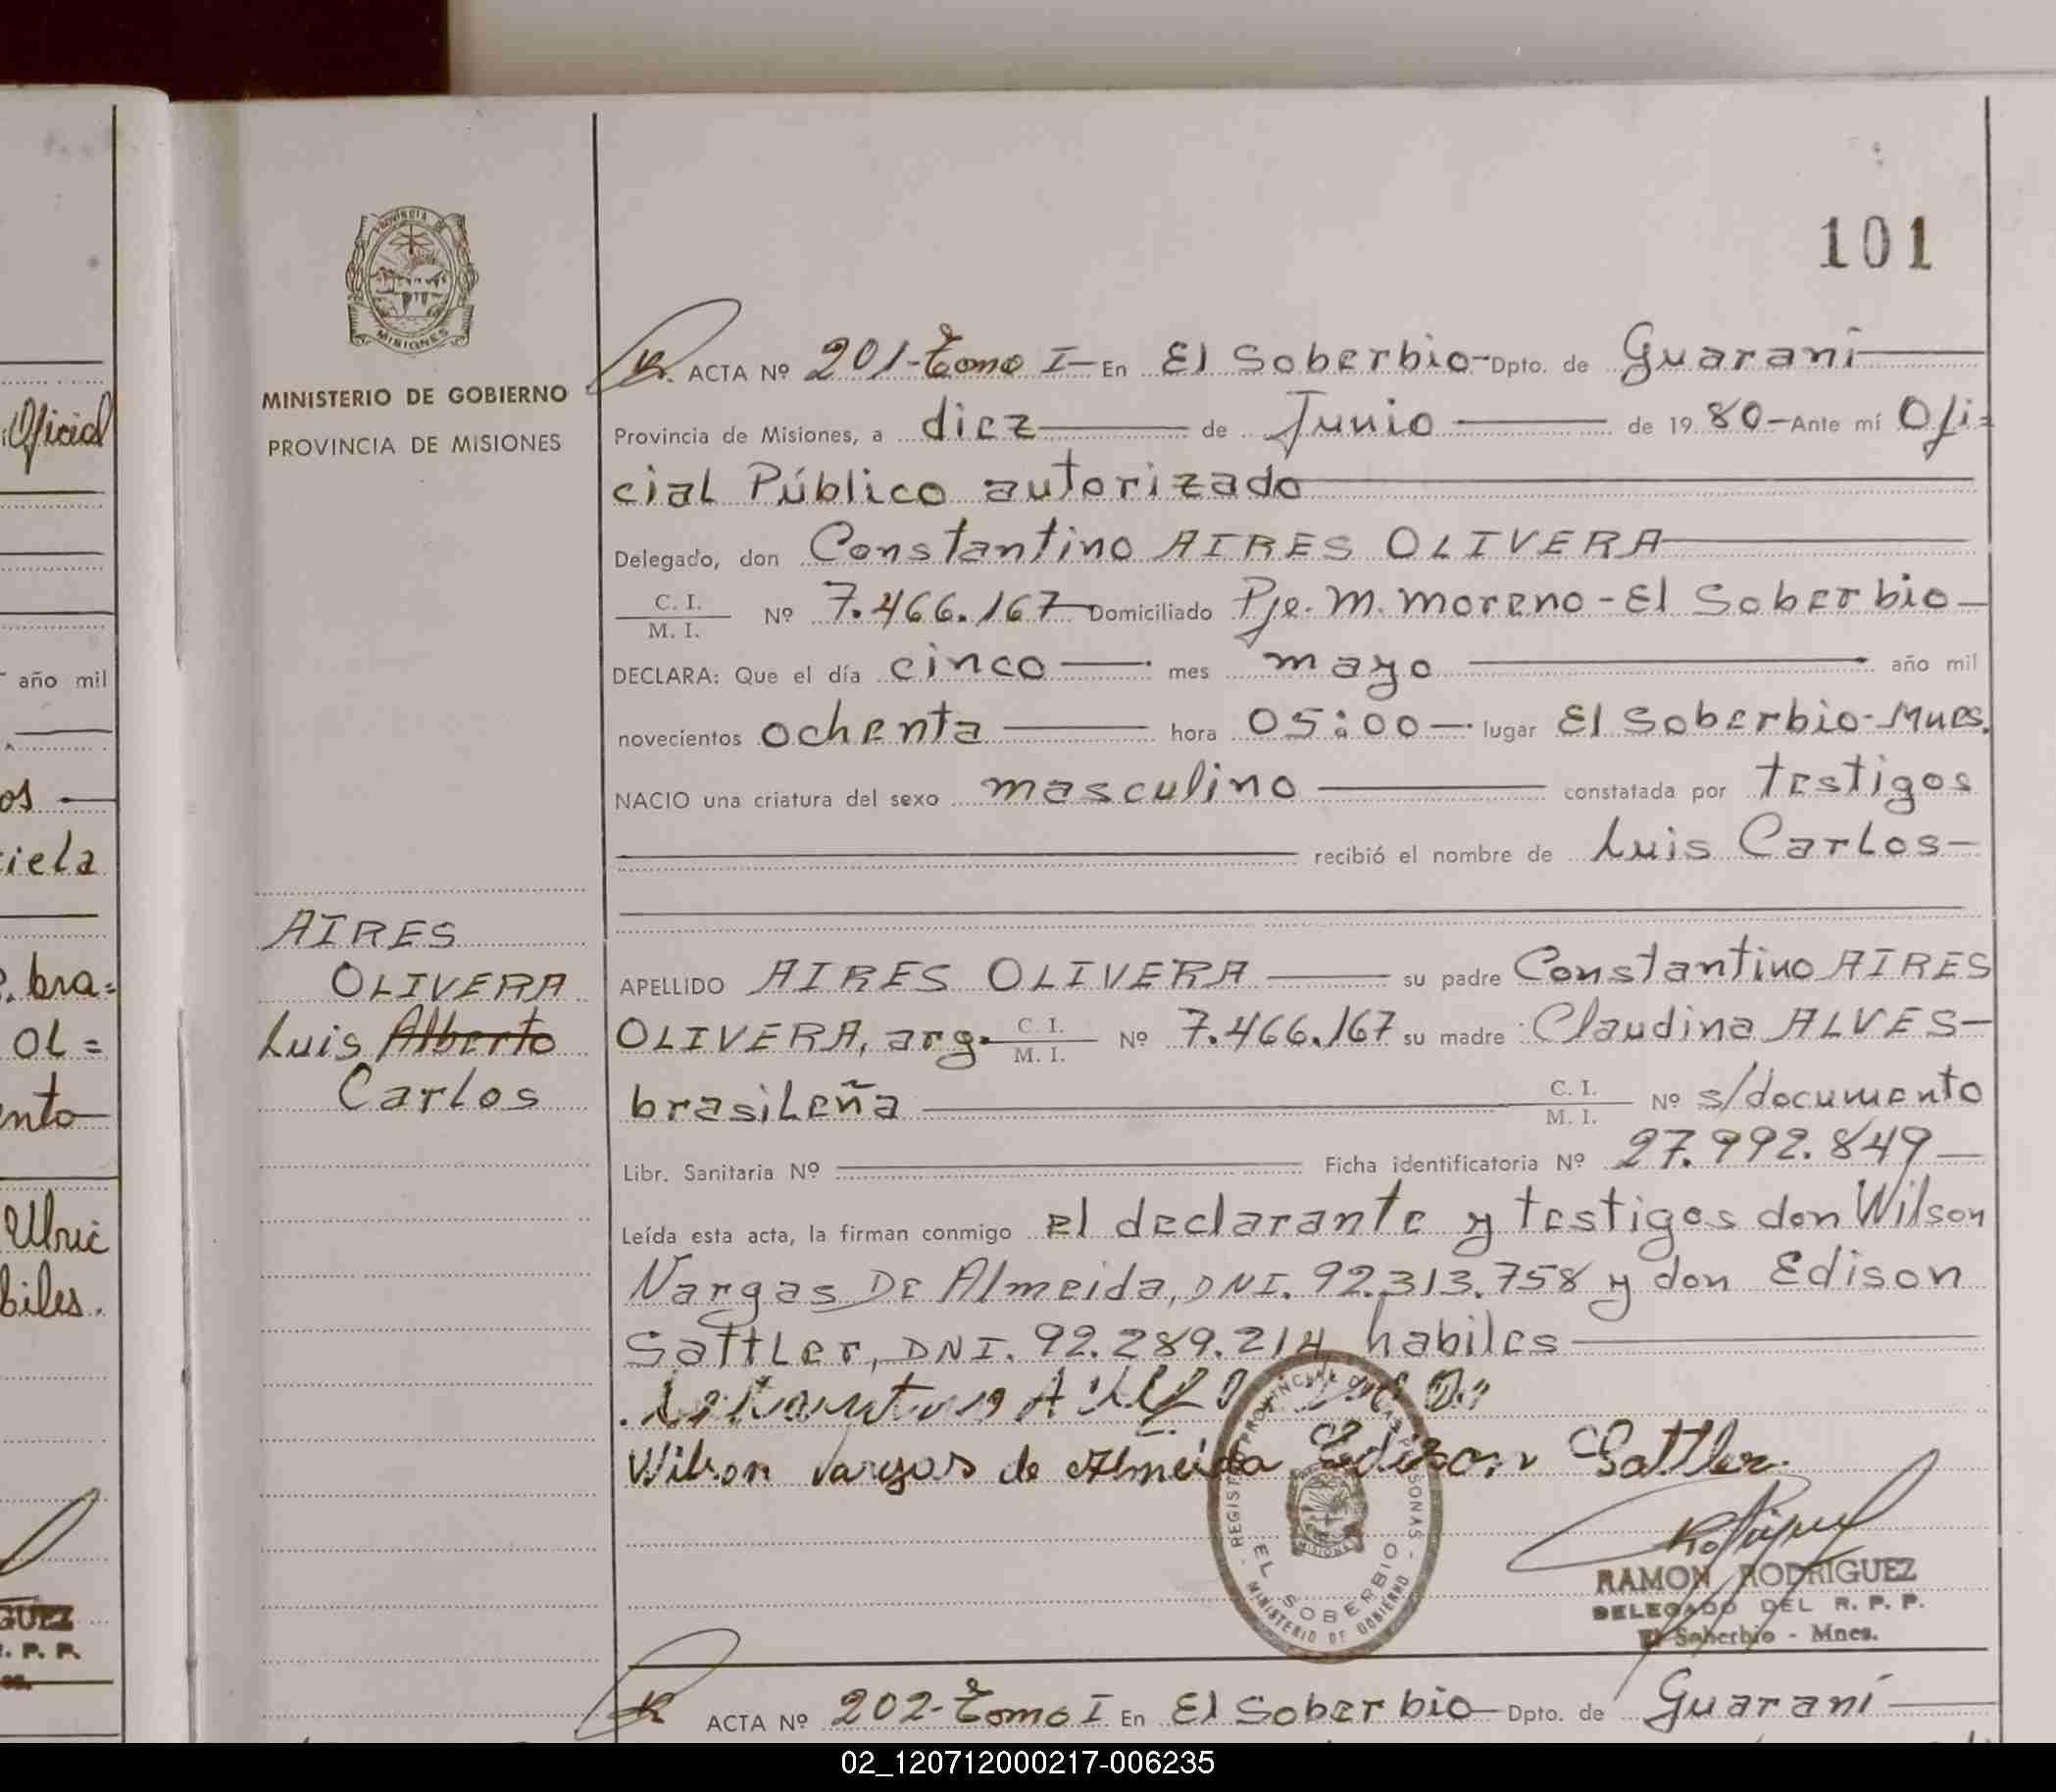 101
MINISTERIO DE GOBIERNO
PROVINCIA DE MISIONES
ACTA Nº 201-Tomo I- En El Soberbio- Dpto. de Guaraní
Provincia de Misiones, a diez de Junio de 19 80- Ante mí Ofi=
cial Público autorizado
Delegado, don Constantino AIRES OLIVERA
C. I. / M. I. Nº 7.466.167 Domiciliado Pje. M. Moreno - El Soberbio-
DECLARA: Que el día cinco mes mayo año mil
novecientos ochenta hora 05:00 lugar El Soberbio-Mnes.
NACIO una criatura del sexo masculino constatada por testigos
recibió el nombre de Luis Carlos-
AIRES
OLIVERA
Luis Alberto
Carlos
APELLIDO AIRES OLIVERA su padre Constantino AIRES
OLIVERA, arg. C. I. / M. I. Nº 7.466.167 su madre Claudina ALVES-
brasileña C. I. / M. I. Nº s/documento
Libr. Sanitaria Nº Ficha identificatoria Nº 27.992.849
Leída esta acta, la firman conmigo el declarante y testigos don Wilson
Vargas De Almeida, DNI. 92.313.758 y don Edison
Sattler, DNI. 92.289.214 habiles
Wilson Vargas de Almeida Edison Sattler
REGISTRO PROVINCIAL DE LAS PERSONAS
EL SOBERBIO
MINISTERIO DE GOBIERNO
RAMON RODRIGUEZ
DELEGADO DEL R. P. P.
El Soberbio - Mnes.
ACTA Nº 202-Tomo I En El Soberbio Dpto. de Guaraní
Oficial
año mil
os
iela
bra=
OL=
nto
Ulric
biles.
GUEZ
R. P. P.
02_120712000217-006235